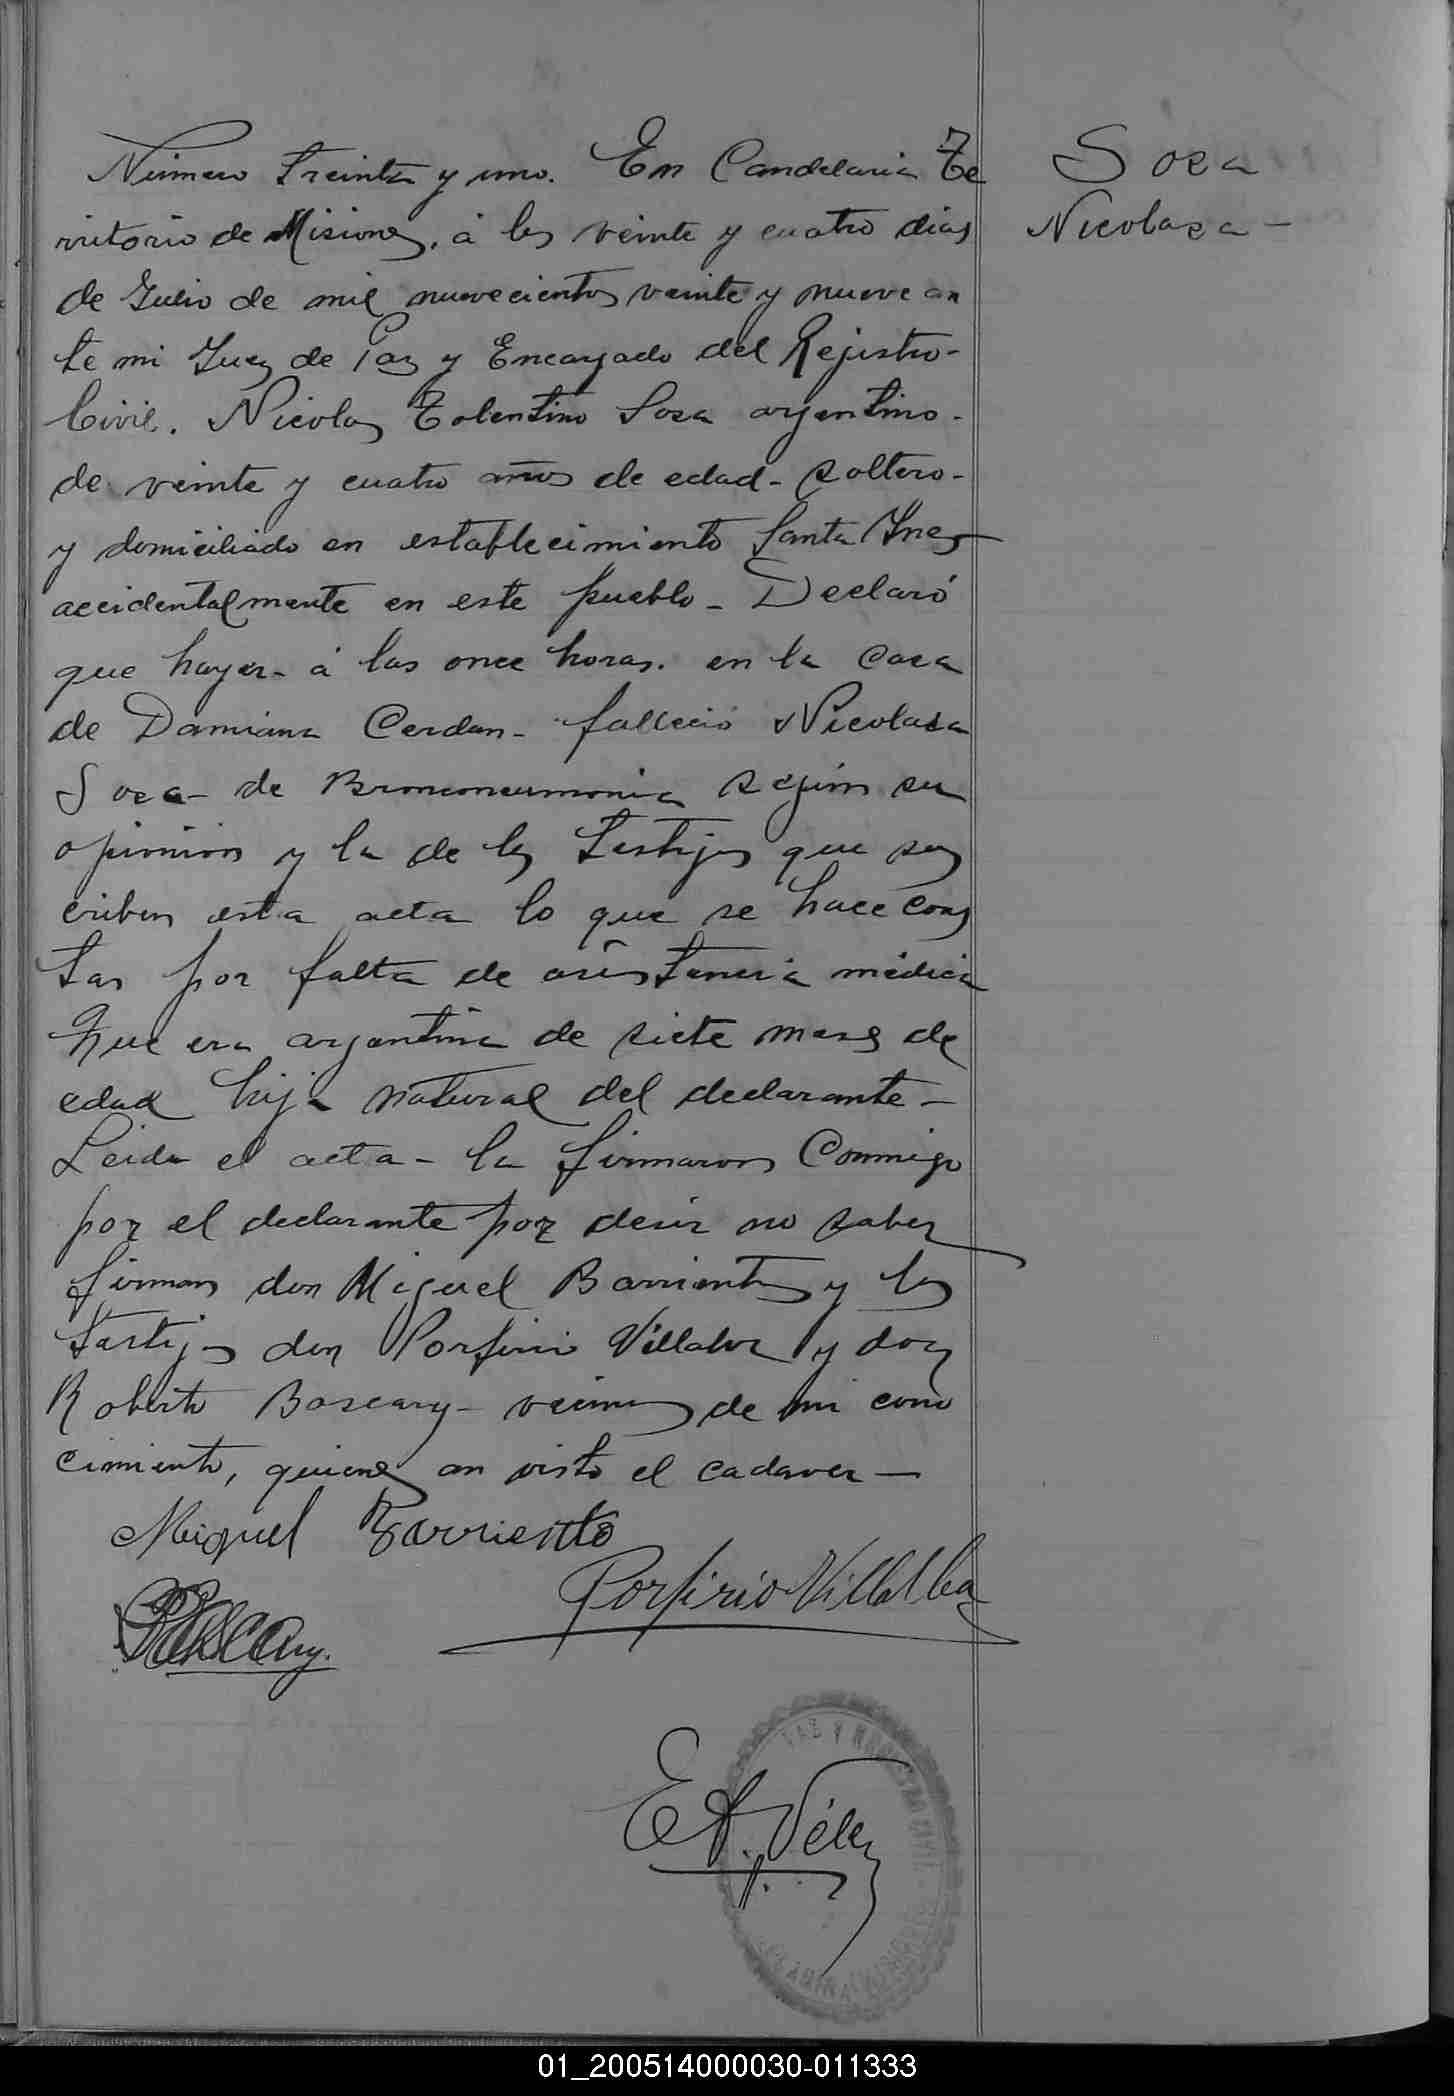 Número treinta y uno. En Candelaria Te
rritorio de Misiones, á los veinte y cuatro dias
de Julio de mil nuevecientos veinte y nueve an
te mi Juez de Paz y Encargado del Rejistro-
Civil. Nicolas Tolentino Sosa argentino-
de veinte y cuatro años de edad- soltero-
y domiciliado en establecimiento Santa Ines
accidentalmente en este pueblo- Declaró
que hayer- á las once horas. en la casa
de Damiana Cerdan- falleció Nicolasa
Sosa- de Bronconeumonia segun su
opinion y la de los testijos que sus
criben esta acta lo que se hace cons
tar por falta de asistencia médica
Que era argentina de siete meses de
edad hija natural del declarante-
Leida el acta- la firmaron Conmigo
por el declarante por decir no saber
firmar don Miguel Barrientos y los
testijos don Porfirio Villalba y don
Roberto Bascary- vecinos de mi cono
cimiento, quienes an visto el cadaver-
Miguel Barriento
Porfirio Villalba
RBascary.
E A. Vélez
Sosa
Nicolasa-
PAZ Y REGISTRO CIVIL
01_200514000030-011333